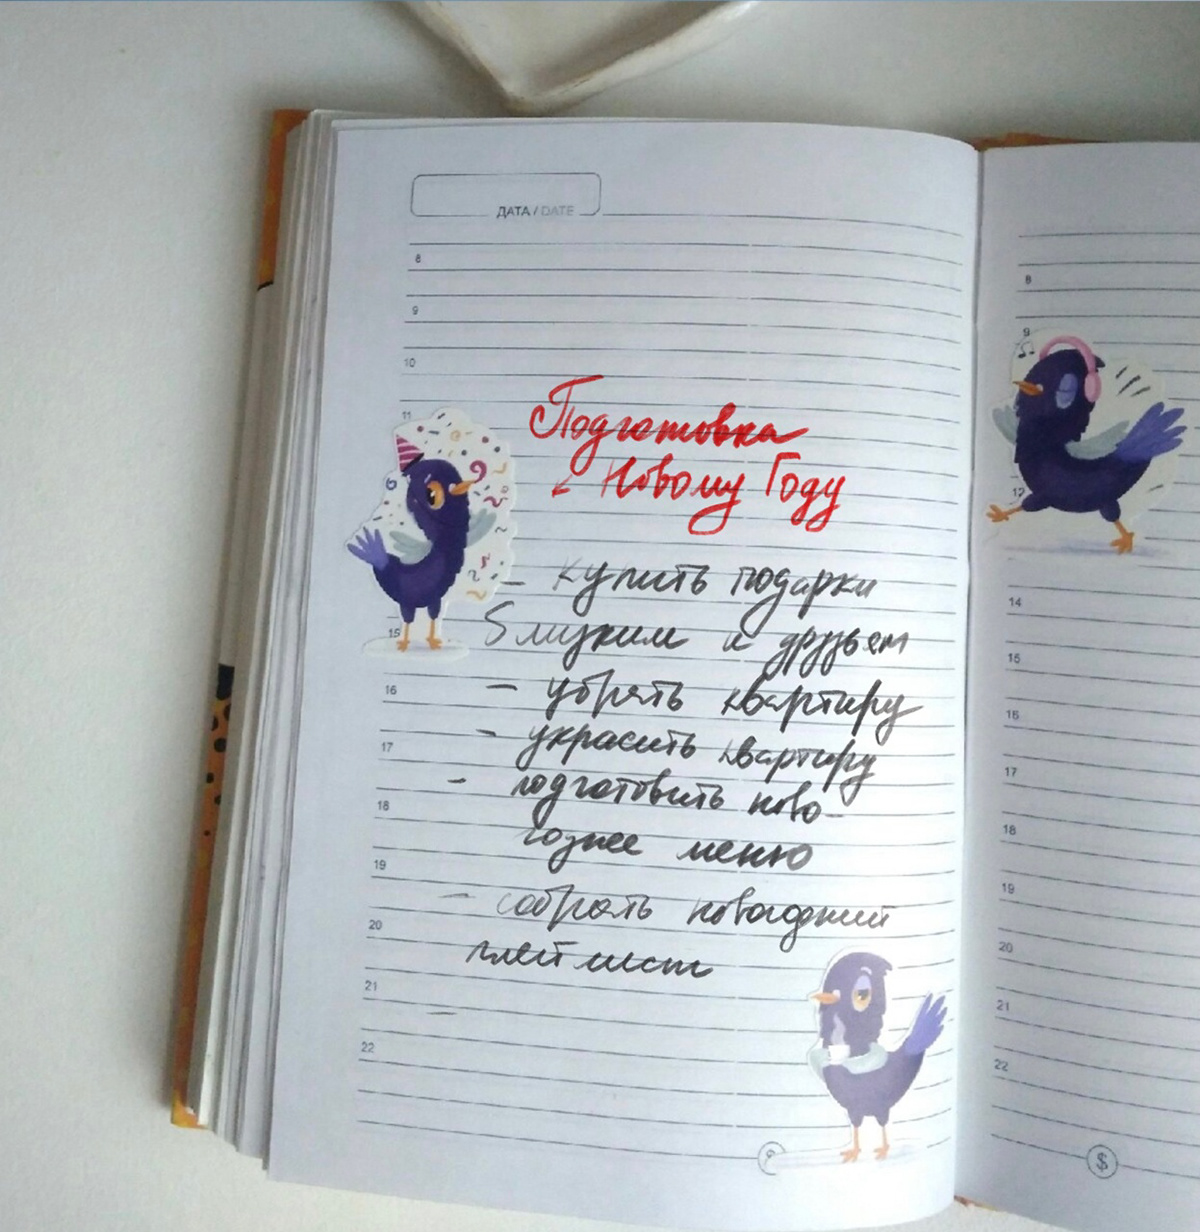 ДАТА / DATE
8
9
10
11
Подготовка
к Новому Году
- купить подарки
близким и друзьям
15
- убрать квартиру
16
- украсить квартиру
17
- подготовить ново-
18
годнее меню
19
- собрать новогодний
20
плейлист
21
-
22
8
9
12
14
15
16
17
18
19
20
21
22
$